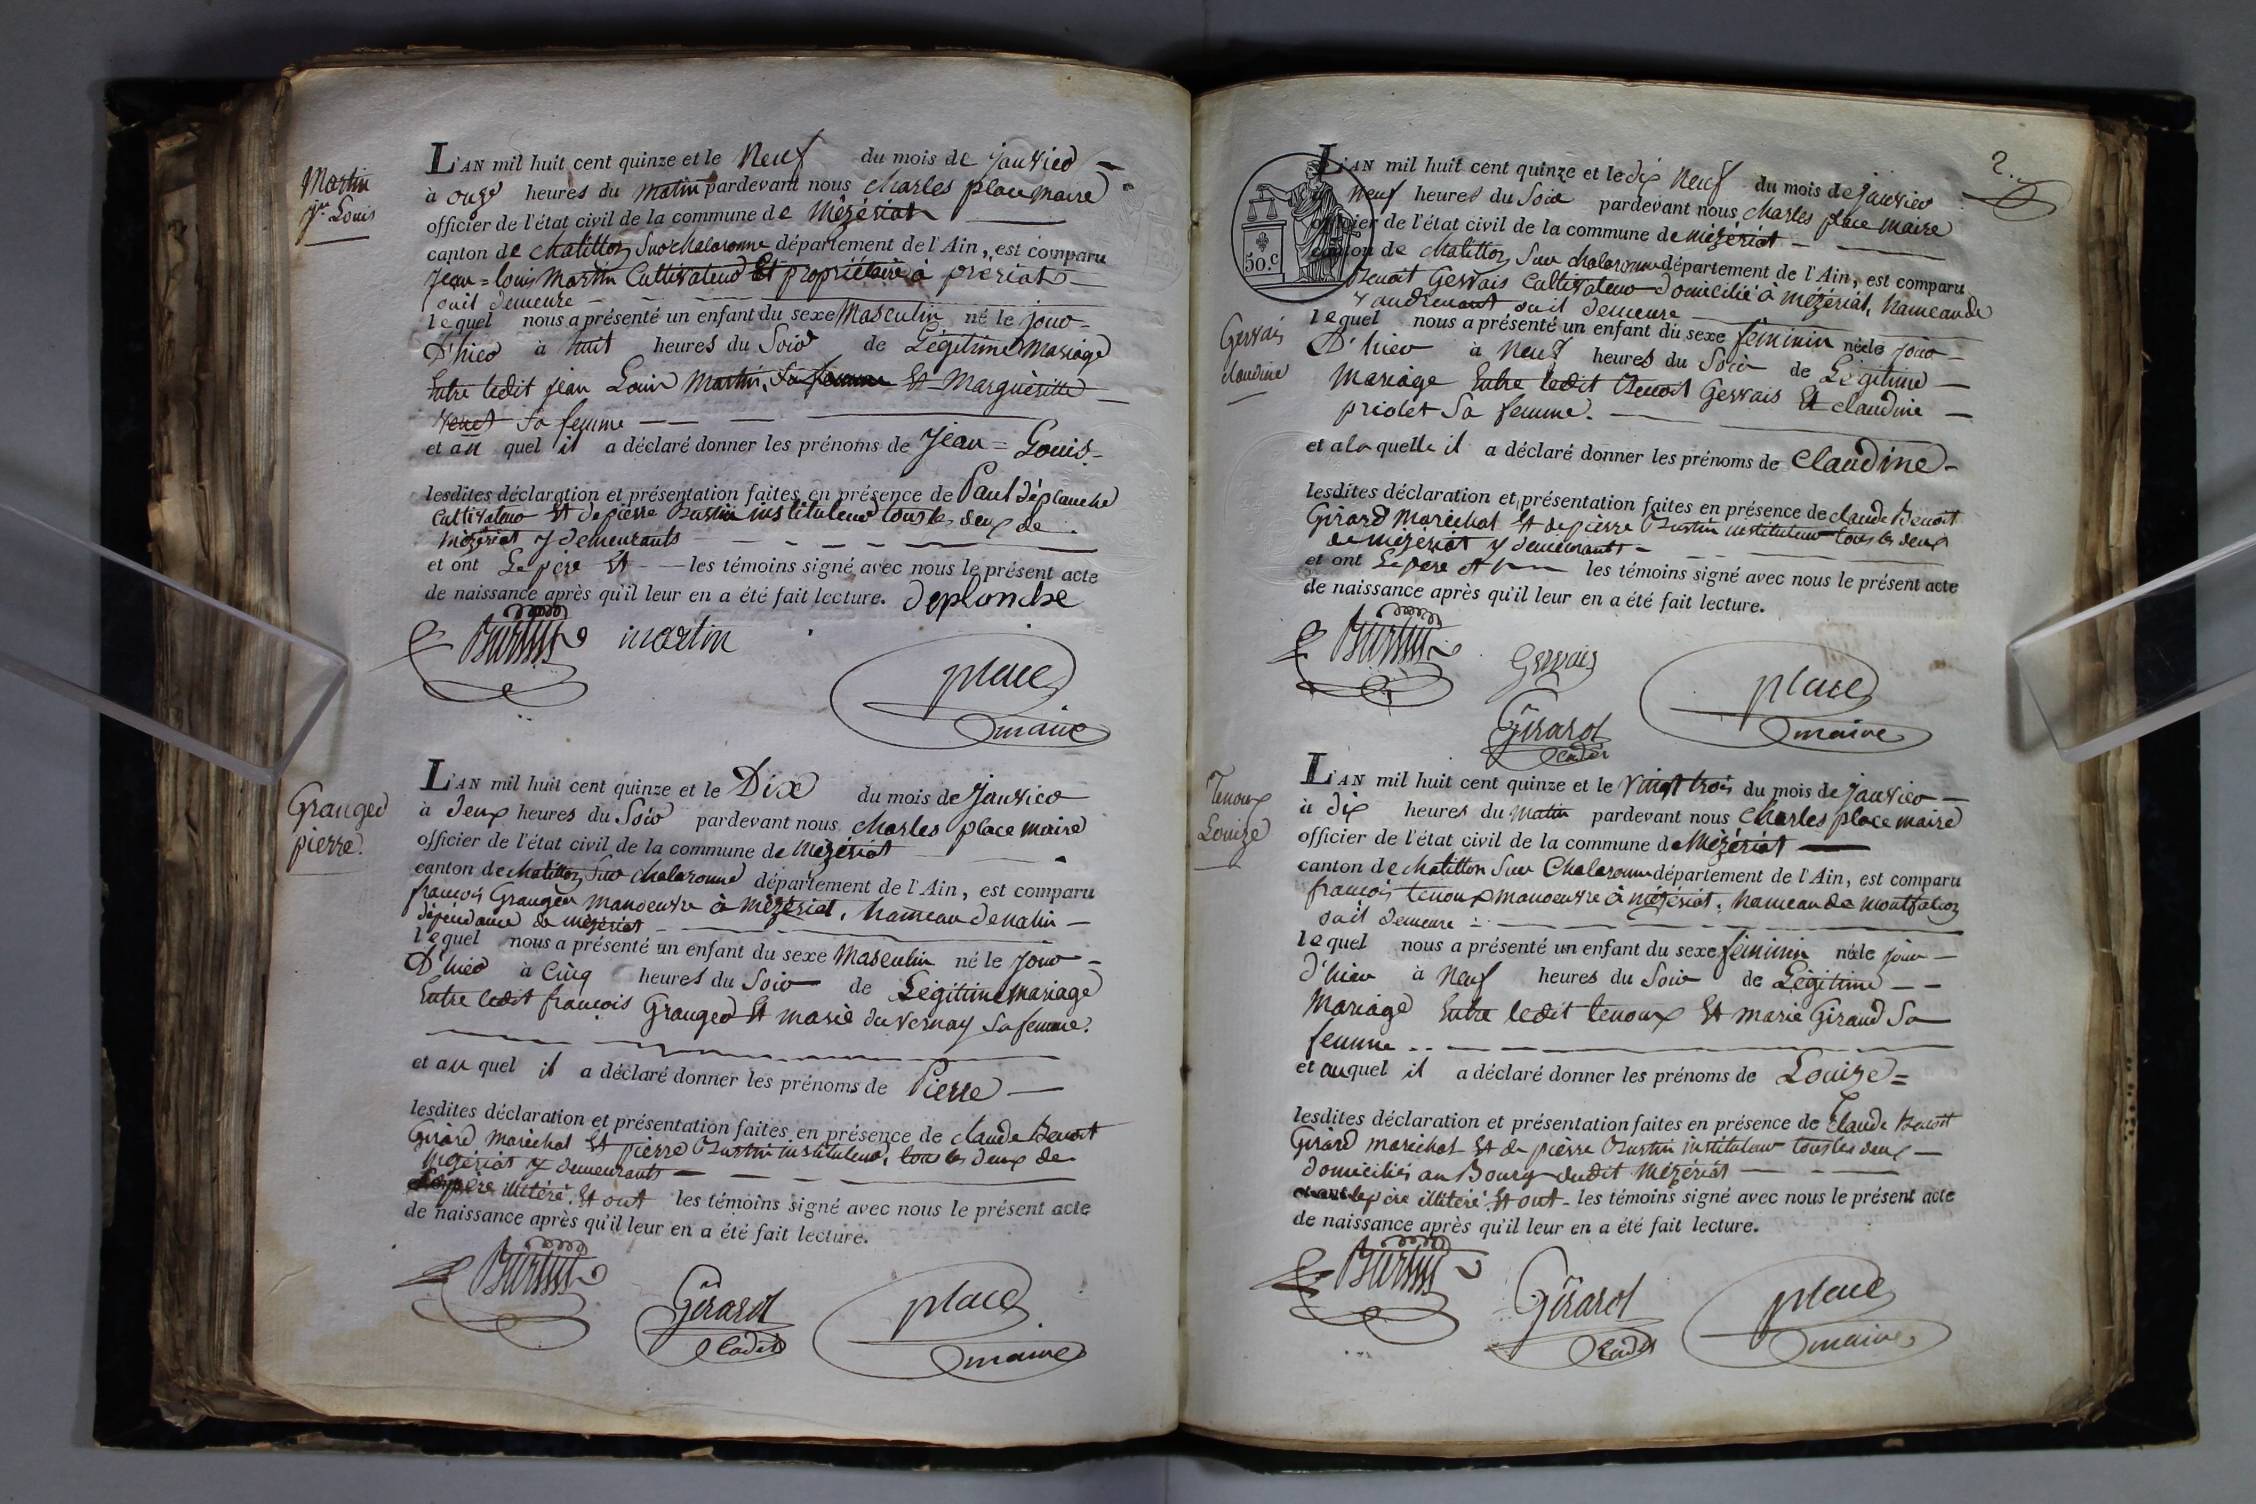 Martin
jn Louis
L'AN mil huit cent quinze et le Neuf du mois de janvier
à onze heures du matin pardevant nous charles place maire
officier de l'état civil de la commune de Mézériat
canton de chatillon sur chalaronne département de l'Ain, est comparu
jean = louis Martin Cultivateur Et propriétaire à
ouil demeure
lequel nous a présenté un enfant du sexe Masculin né le jour
D'hier à huit heures du Soir de Légitime Mariage
Entre ledit jean Louis Martin, sa femme Et Marguèritte
venet Sa femme
et au quel il a déclaré donner les prénoms de Jean = Louis
lesdites déclaration et présentation faites en présence de Paul déplanche
Cultivateur Et de pierre Burtin instituteur tous les deux de
mézériat y demeurants
et ont Le père Et les témoins signé avec nous le présent acte
de naissance après qu'il leur en a été fait lecture. deplanche
Burtin martin
place
maire
Granger
pierre
L'AN mil huit cent quinze et le Dix du mois de Janvier
à deux heures du Soir pardevant nous charles place maire
officier de l'état civil de la commune de Mézériat
canton de chatillon Sur chalaronne département de l'Ain, est comparu
françois Granger manoeuvre à mézériat, hameau de
dépendance de mézériat
lequel nous a présenté un enfant du sexe Masculin né le jour
D'hier à Cinq heures du Soir de Légitime Mariage
Entre ledit françois Granger Et marie duvernay Sa femme.
et au quel il a déclaré donner les prénoms de Pierre
lesdites déclaration et présentation faites en présence de claude Benoit
Girard maréchal Et pierre Burtin instituteur, tous les deux de
Mézériat y demeurants
père illitéré. Et ont les témoins signé avec nous le présent acte
de naissance après qu'il leur en a été fait lecture.
Burtin
Girard
Cadet
place
maire
2.
L'AN mil huit cent quinze et le dix Neuf du mois de janvier
Neuf heures du Soir pardevant nous charles place maire
officier de l'état civil de la commune de mézériat
canton de chatillon Sur chalaronne département de l'Ain, est comparu
50.C
Benoit Gervais Cultivateur domicilié à mézériat, hameau de
ouil demeure
Gervais
claudine
lequel nous a présenté un enfant du sexe féminin né le jour
D'hier à Neuf heures du Soir de Légitime
Mariage Entre ledit Benoit Gervais Et claudine
priolet Sa femme.
et a la quelle il a déclaré donner les prénoms de Claudine
lesdites déclaration et présentation faites en présence de claude Benoit
Girard Maréchal Et de pierre Burtin instituteur tous les deux
de mézériat y demeurants
et ont Le père et les témoins signé avec nous le présent acte
de naissance après qu'il leur en a été fait lecture.
Burtin
Gervais
Girard
Cadet
place
maire
Tenoux
Louize
L'AN mil huit cent quinze et le vingt trois du mois de janvier
à dix heures du matin pardevant nous Charles place maire
officier de l'état civil de la commune de Mézériat
canton de chatillon Sur Chalaronne département de l'Ain, est comparu
françois tenoux manoeuvre à mézériat, hameau de montfalcon
ouil demeure
lequel nous a présenté un enfant du sexe féminin né le jour
d'hier à Neuf heures du Soir de Légitime
Mariage Entre ledit tenoux Et marie Giraud Sa
femme
et auquel il a déclaré donner les prénoms de Louize =
lesdites déclaration et présentation faites en présence de Claude Benoit
Girard maréchal Et de pierre Burtin instituteur tous les deux
domiciliés au Bourg dudit Mézériat
le père illitéré. Et ont les témoins signé avec nous le présent acte
de naissance après qu'il leur en a été fait lecture.
Burtin
Girard
Cadet
place
maire